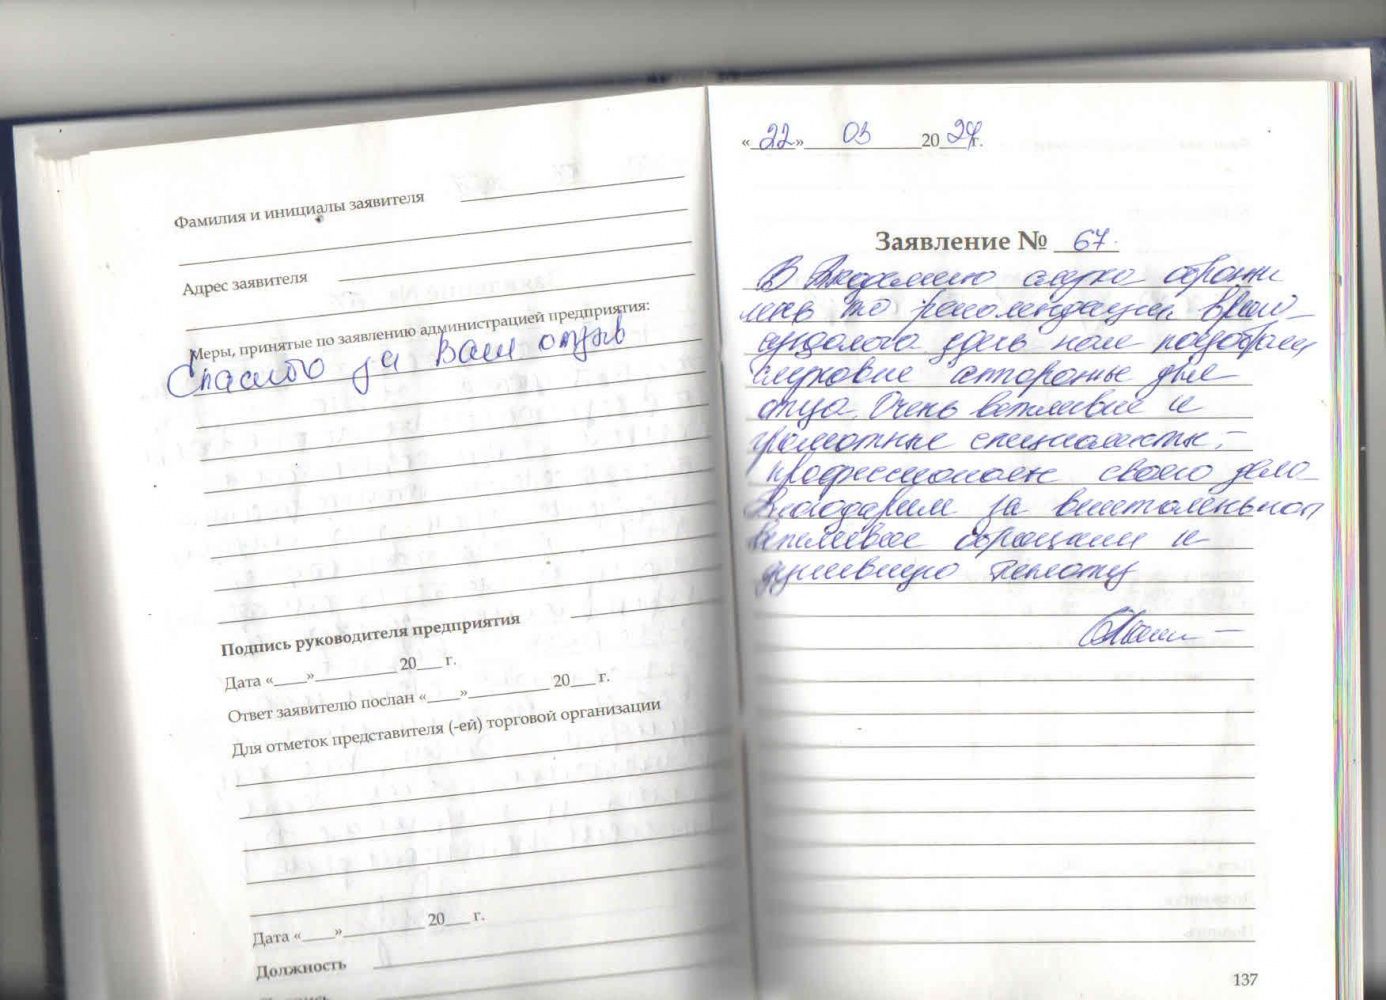 Фамилия и инициалы заявителя
Адрес заявителя
Меры, принятые по заявлению администрацией предприятия:
Спасибо за Ваш отзыв
Подпись руководителя предприятия
Дата «____»__________ 20___ г.
Ответ заявителю послан «____»__________ 20___ г.
Для отметок представителя (-ей) торговой организации
Дата «____»__________ 20___ г.
Должность
«22» 03 2024 г.
Заявление № 67
В Академию слуха обрати
лись по рекомендации врача-
сурдолога здесь нам подобрали
слуховые аппараты для
отца. Очень вежливые и
грамотные специалисты, –
профессионалы своего дела
Благодарим за внимательное
вежливое обращение и
душевную теплоту
137